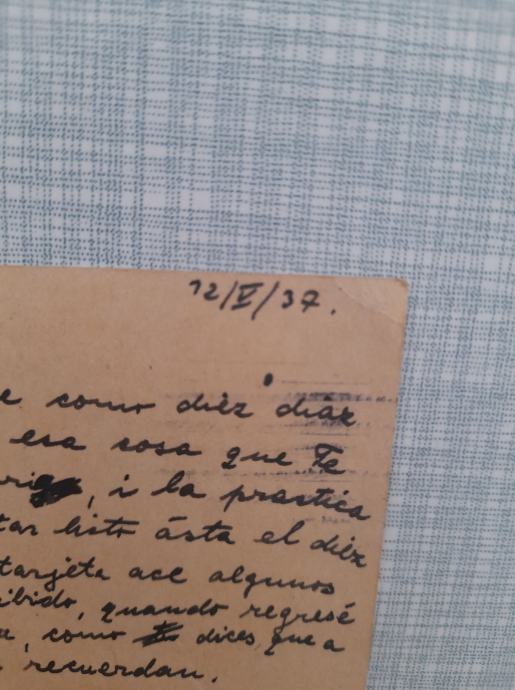 12/V/37.
e como diéz diáz
esa cosa que Te
, i la practica
tar listo ásta el diéz
tarjeta ace algunos
ibido, quando regresé
, como dices que a
recuerdan.